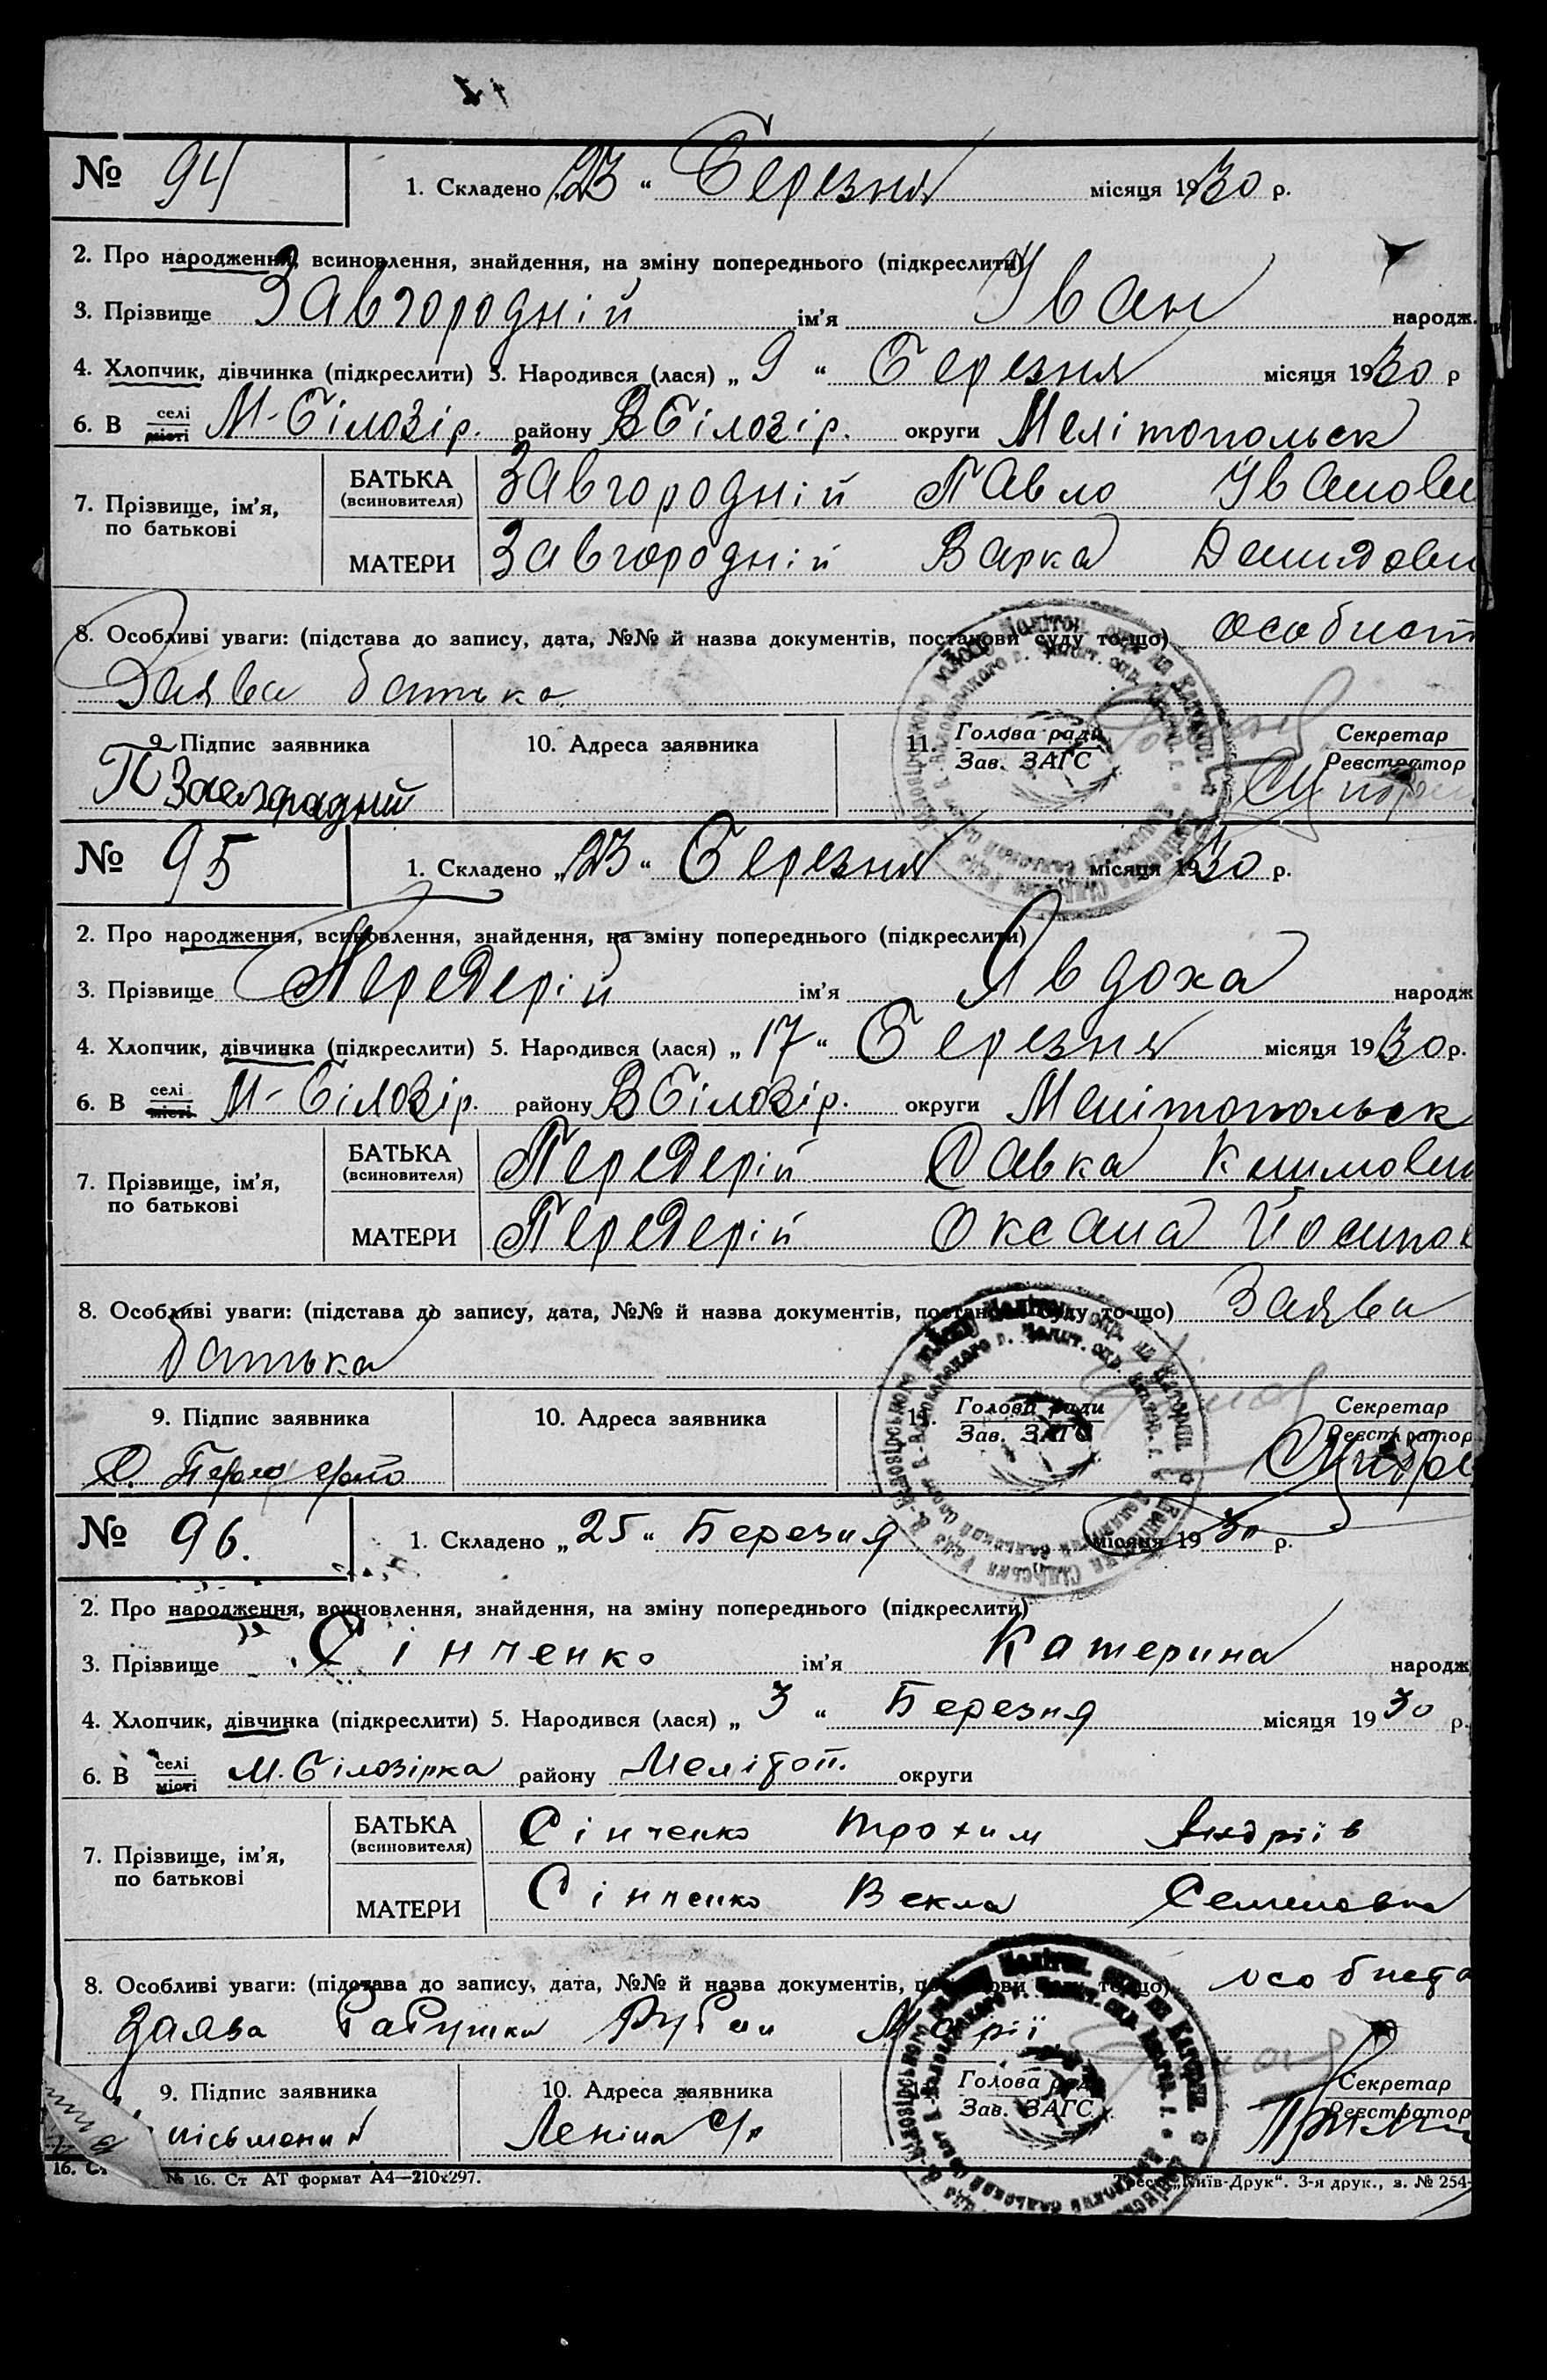 № 94 1. Складено „23“ Березня місяця 1930 р.
2. Про народження, всиновлення, знайдення, на зміну попереднього (підкреслити)
3. Прізвище Завгородній ім'я Іван народж.
4. Хлопчик, дівчинка (підкреслити) 5. Народився (лася) „9“ Березня місяця 1930 р
6. В селі місті М-Білозір. району В Білозір. округи Мелітопольск
7. Прізвище, ім'я, по батькові
БАТЬКА (всиновителя) Завгородній Павло Іванови
МАТЕРИ Завгородній Варка Демидови
8. Особливі уваги: (підстава до запису, дата, №№ й назва документів, постанови суду то-що) особист
Заява батька
9. Підпис заявника 10. Адреса заявника 11. Голова ради Зав. ЗАГС Секретар Реєстратор
№ 95 1. Складено „23“ Березня місяця 1930 р.
2. Про народження, всиновлення, знайдення, на зміну попереднього (підкреслити)
3. Прізвище Передерій ім'я Явдоха народж
4. Хлопчик, дівчинка (підкреслити) 5. Народився (лася) „17“ Березня місяця 1930 р.
6. В селі місті М-Білозір. району В Білозір. округи Мелітопольск
7. Прізвище, ім'я, по батькові
БАТЬКА (всиновителя) Передерій Савка Климови
МАТЕРИ Передерій Оксана Йосипов
8. Особливі уваги: (підстава до запису, дата, №№ й назва документів, постанови суду то-що) Заява
батька
9. Підпис заявника 10. Адреса заявника 11. Голова ради Зав. ЗАГС Секретар Реєстратор
№ 96. 1. Складено „25“ Березня місяця 1930 р.
2. Про народження, всиновлення, знайдення, на зміну попереднього (підкреслити)
3. Прізвище Сінченко ім'я Катерина народж
4. Хлопчик, дівчинка (підкреслити) 5. Народився (лася) „3“ Березня місяця 1930 р.
6. В селі місті М. Білозірка району Меліtоп. округи
7. Прізвище, ім'я, по батькові
БАТЬКА (всиновителя) Сінченко Трохим Андріїв
МАТЕРИ Сінченко Векла Семеновна
8. Особливі уваги: (підстава до запису, дата, №№ й назва документів, постанови то-що) особиста
Заява бабушки Марії
9. Підпис заявника 10. Адреса заявника Голова ради Зав. ЗАГС Секретар Реєстратор
Леніна
№ 16. Ст АТ формат А4—210х297. Трест „Київ-Друк“. 3-я друк., з. № 254-